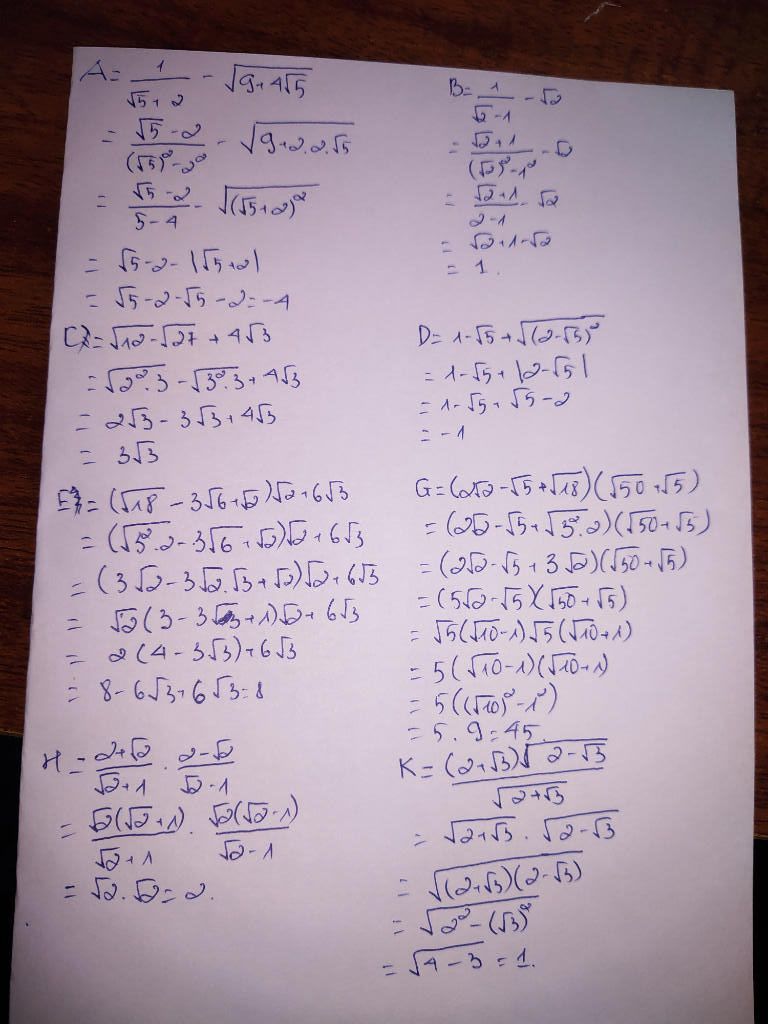 A = 1/(√5 + 2) - √(9 + 4√5)
= (√5 - 2)/((√5)² - 2²) - √(9 + 2.2.√5)
= (√5 - 2)/(5 - 4) - √((√5 + 2)²)
= √5 - 2 - |√5 + 2|
= √5 - 2 - √5 - 2 = -4
B = 1/(√2 - 1) - √2
= (√2 + 1)/((√2)² - 1²) - √2
= (√2 + 1)/(2 - 1) - √2
= √2 + 1 - √2
= 1.
C = √12 - √27 + 4√3
= √(2².3) - √(3².3) + 4√3
= 2√3 - 3√3 + 4√3
= 3√3
D = 1 - √5 + √((2 - √5)²)
= 1 - √5 + |2 - √5|
= 1 - √5 + √5 - 2
= -1
E = (√18 - 3√6 + √2)√2 + 6√3
= (√(3².2) - 3√6 + √2)√2 + 6√3
= (3√2 - 3√2.√3 + √2)√2 + 6√3
= √2(3 - 3√3 + 1)√2 + 6√3
= 2(4 - 3√3) + 6√3
= 8 - 6√3 + 6√3 = 8
G = (2√2 - √5 + √18)(√50 + √5)
= (2√2 - √5 + √(3².2))(√50 + √5)
= (2√2 - √5 + 3√2)(√50 + √5)
= (5√2 - √5)(√50 + √5)
= √5(√10 - 1)√5(√10 + 1)
= 5(√10 - 1)(√10 + 1)
= 5((√10)² - 1²)
= 5.9 = 45.
H = (2 + √2)/(√2 + 1) . (2 - √2)/(√2 - 1)
= √2(√2 + 1)/(√2 + 1) . √2(√2 - 1)/(√2 - 1)
= √2.√2 = 2.
K = (2 + √3)√(2 - √3)/√(2 + √3)
= √(2 + √3) . √(2 - √3)
= √((2 + √3)(2 - √3))
= √(2² - (√3)²)
= √(4 - 3) = 1.